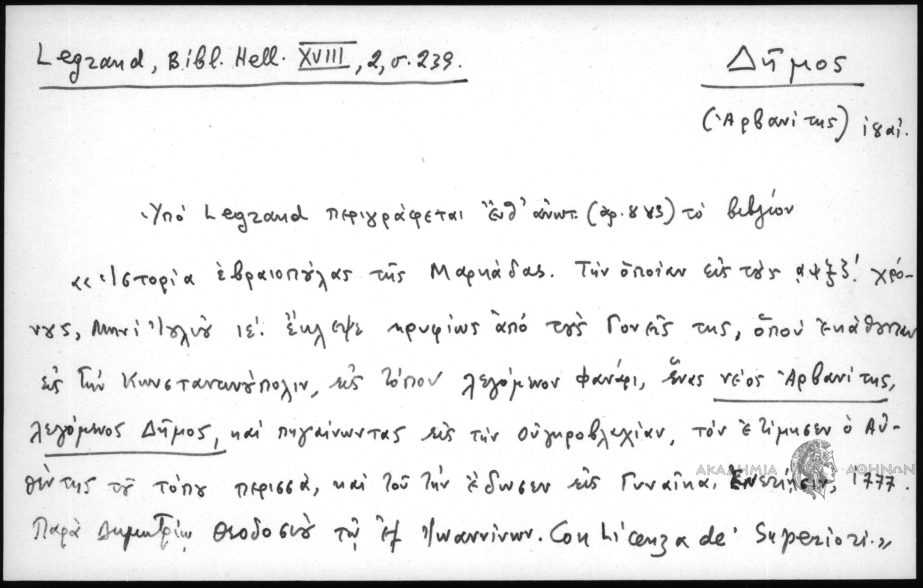 Legrand, Bibl. Hell. XVIII, 2, σ. 239.
Δῆμος
(Ἀρβανίτης) ἰδαι.
Ὑπὸ Legrand περιγράφεται ἔνθ' ἀνωτ. (ἀρ. 843) τὸ βιβλίον
«Ἱστορία ἑβραιοπούλας τῆς Μαρκάδας. Τὴν ὁποίαν εἰς τοὺς αψξξ! χρό-
νους, Μηνὶ Ἰουλίου ιε'. ἔκλεψε κρυφίως ἀπὸ τοὺς Γονεῖς της, ὅπου ἐκάθουνταν
εἰς τὴν Κωνσταντινούπολιν, εἰς τόπον λεγόμενον Φανάρι, ἕνας νέος Ἀρβανίτης,
λεγόμενος Δῆμος, καὶ πηγαίνωντας εἰς τὴν Οὐγκροβλαχίαν, τὸν ἐτίμησεν ὁ Αὐ-
θέντης τοῦ τόπου περισσά, καὶ τοῦ τὴν ἔδωσεν εἰς Γυναῖκα. Ἐνετίησιν, 1777.
Παρὰ Δημητρίῳ Θεοδοσίου τῷ ἐξ Ἰωαννίνων. Con Licenza de' Superiori.»
ΑΚΑΔΗΜΙΑ ΑΘΗΝΩΝ